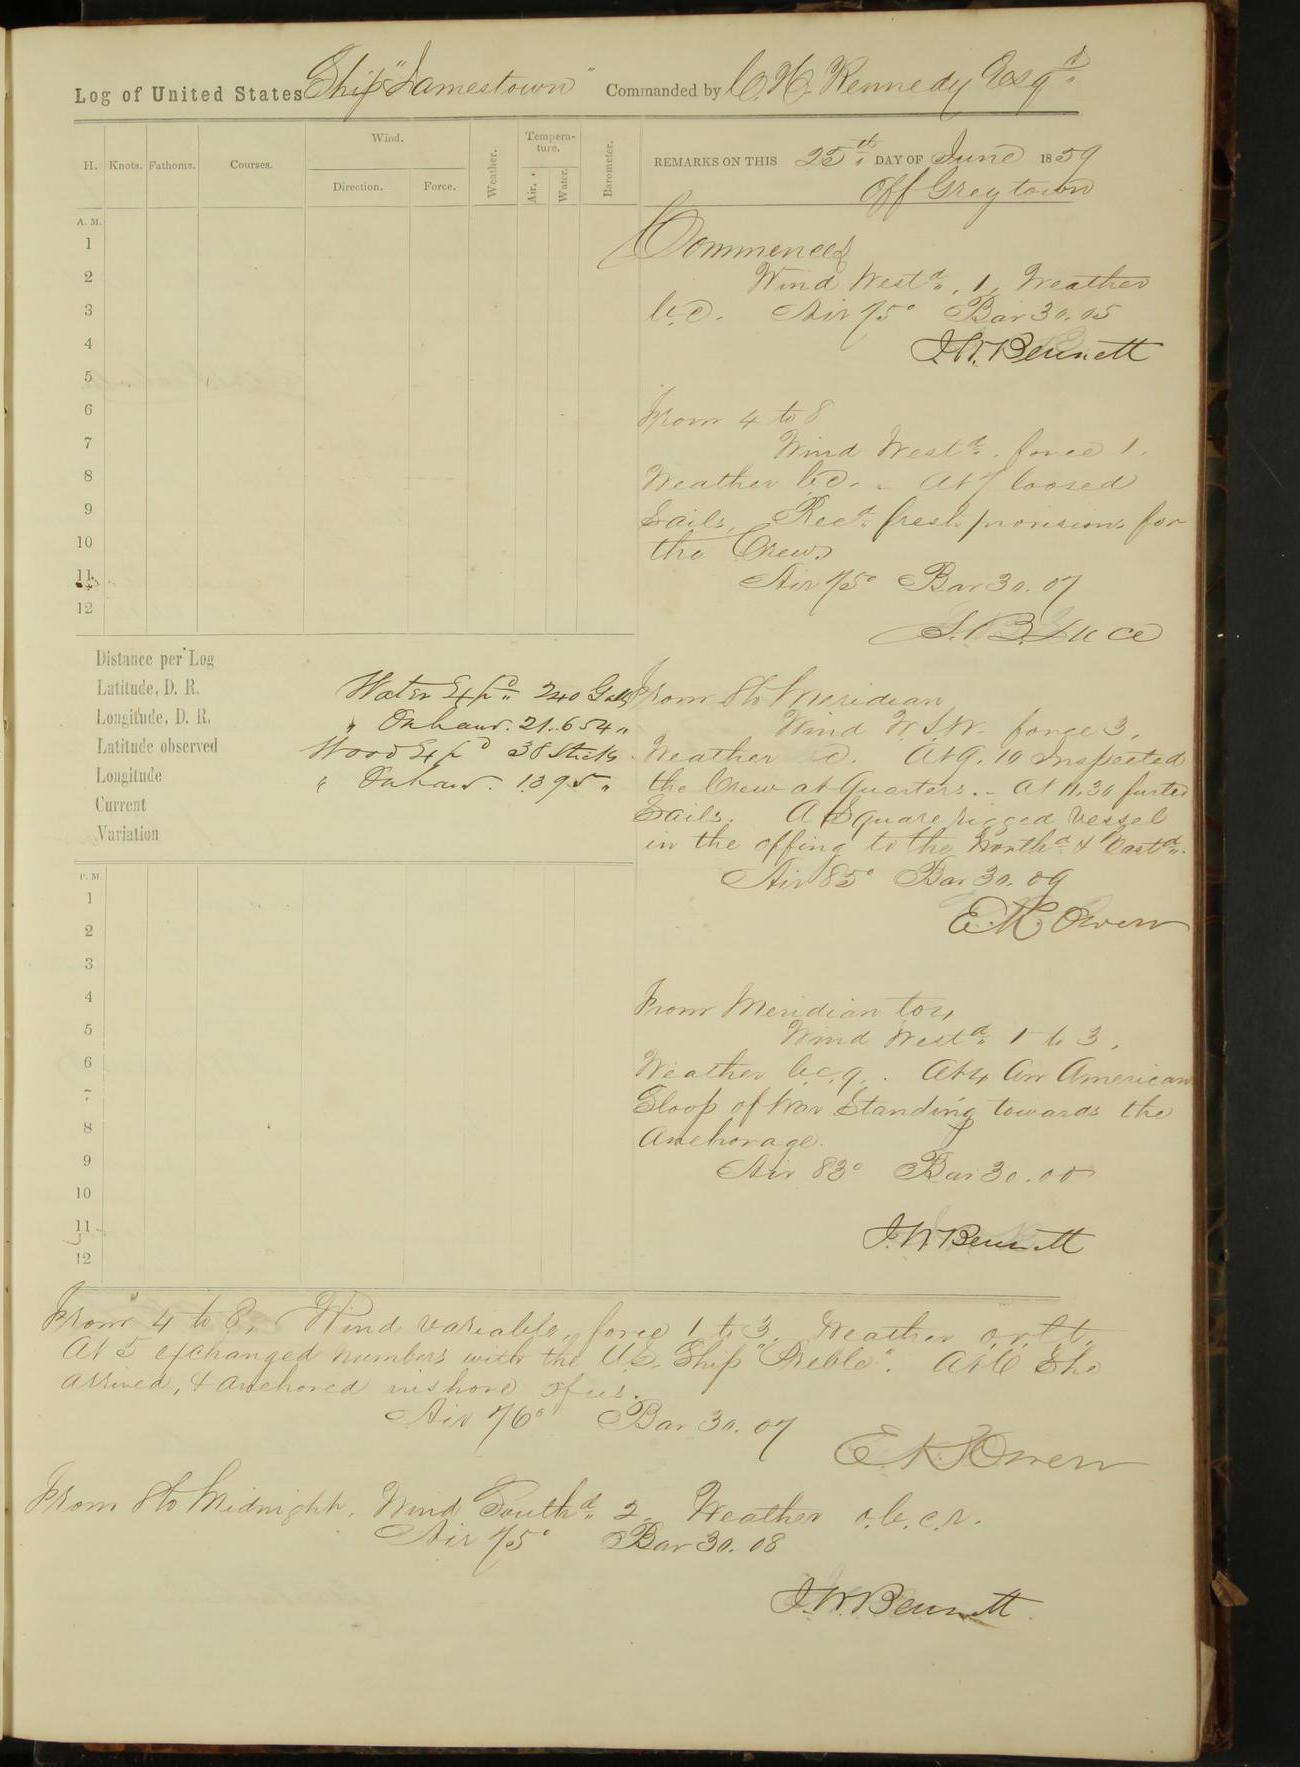 Log of United States Ship "Jamestown" Commanded by C. H. Kennedy Esqd
H. Knots. Fathoms. Courses. Wind. Direction. Force. Weather. Tempera-ture. Air. Water. Barometer.
REMARKS ON THIS 25th DAY OF June 1859
Off Greytown
A. M.
1
2
3
4
5
6
7
8
9
10
11
12
Commenced
Wind Westd. 1. Weather
b.c. Air 75° Bar 30.05
J. W. Bennett
From 4 to 8
Wind Westd. force 1.
Weather b.c. - At 7 loosed
Sails. Recd. fresh provisions for
the Crew.
Air 75° Bar 30.07
S. B. Luce
Distance per Log
Latitude, D. R.
Longitude, D. R.
Latitude observed
Longitude
Current
Variation
Water Expd 240 Galls
" Onhand. 21.654 "
Wood Expd 38 Sticks
" Onhand. 1395 "
From 8 to Meridian
Wind W.S.W. force 3.
Weather c. At 9.10 Inspected
the Crew at Quarters. - At 11.30 furled
Sails. A Square rigged Vessel
in the offing to the Northd. & Eastd.
Air 85° Bar 30.09
E. K. Owen
P. M.
1
2
3
4
5
6
7
8
9
10
11
12
From Meridian to 4
Wind Westd. 1 to 3.
Weather b.c.q. At 4 An American
Sloop of War Standing towards the
Anchorage.
Air 83° Bar 30.00
J. W. Bennett
From 4 to 8, Wind variable, force 1 to 3. Weather o.r.l.t.
At 5 exchanged numbers with the U.S. Ship "Preble". At 6 She
arrived, & anchored inshore of us.
Air 76° Bar 30.07
E. K. Owen
From 8 to Midnight. Wind Southd. 2. Weather o.b.c.r.
Air 75° Bar 30.08
J. W. Bennett